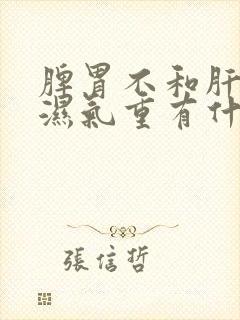 脾胃不和肝
濕氣重有什
張信哲